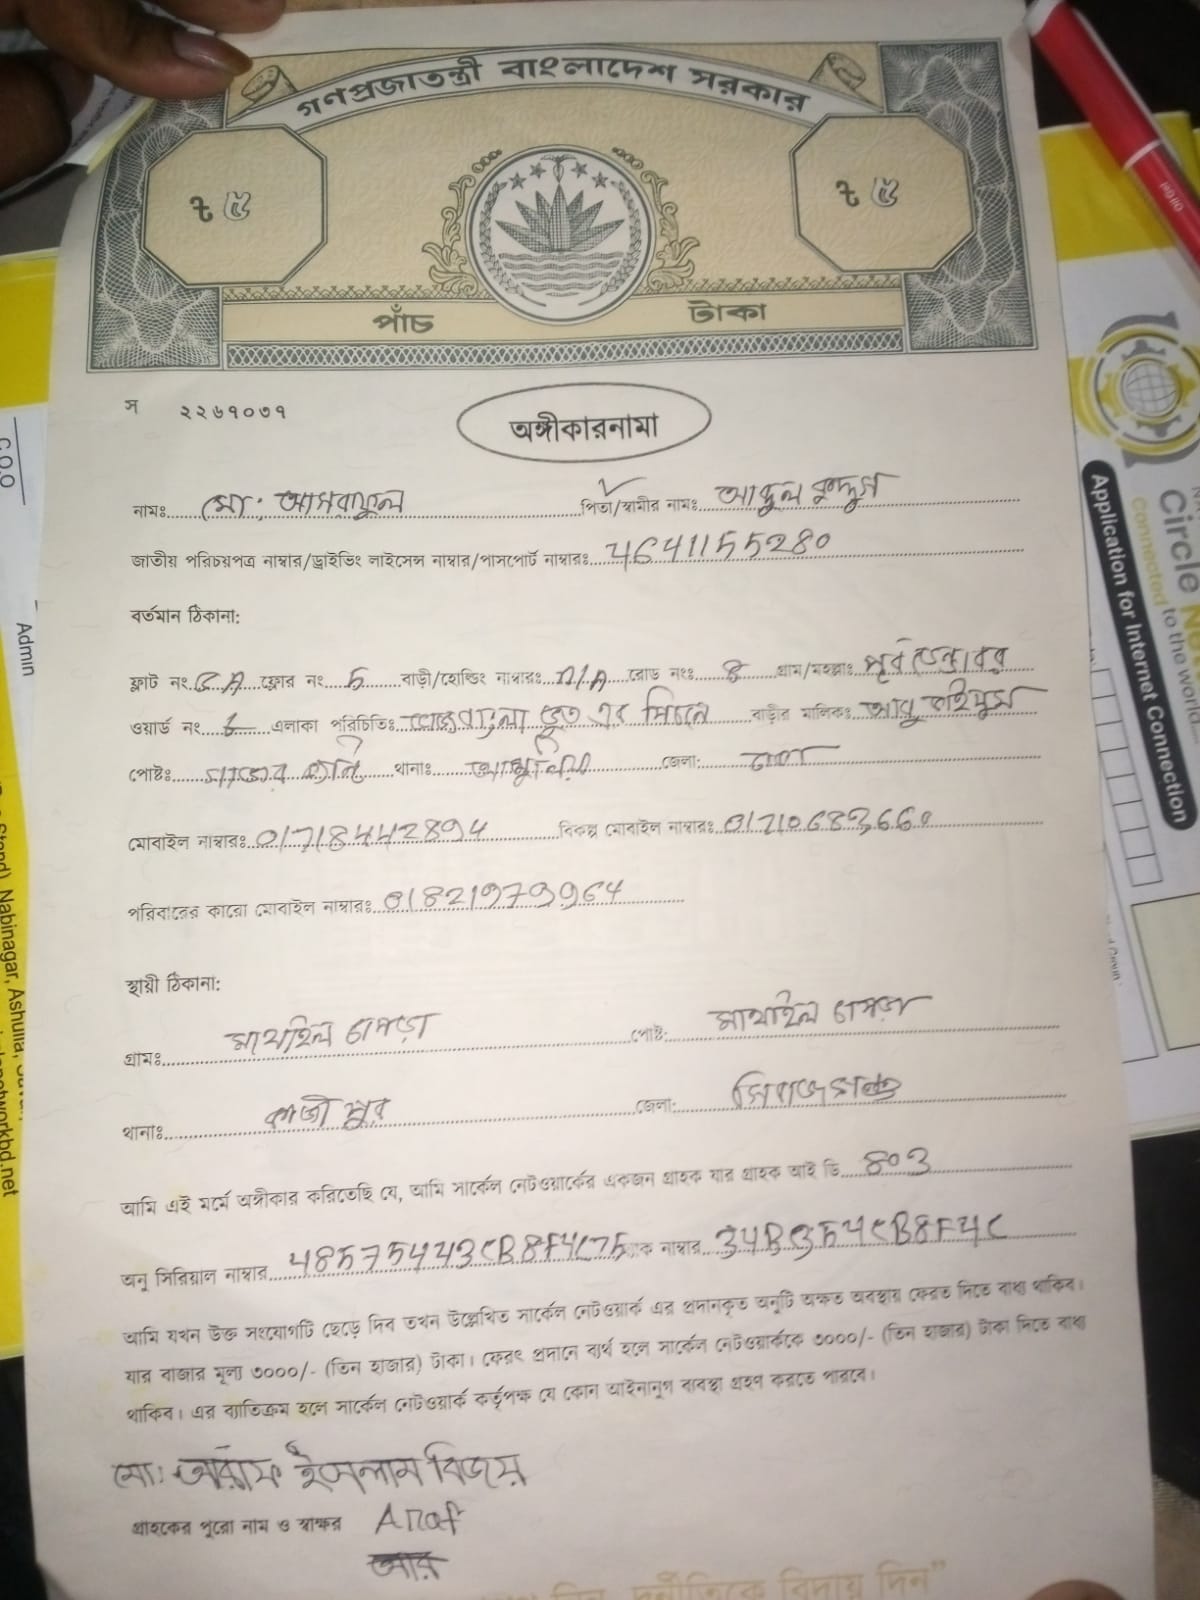 গণপ্রজাতন্ত্রী বাংলাদেশ সরকার
৳ ৫ ৳ ৫
পাঁচ টাকা
স ২২৬৭০৩৭
অঙ্গীকারনামা
নামঃ মো: আসরাফুল পিতা/স্বামীর নামঃ আব্দুল কুদ্দুস
জাতীয় পরিচয়পত্র নাম্বার/ড্রাইভিং লাইসেন্স নাম্বার/পাসপোর্ট নাম্বারঃ 4641155280
বর্তমান ঠিকানা:
ফ্লাট নং ফ্লোর নং 5 বাড়ী/হোল্ডিং নাম্বারঃ N/A রোড নংঃ 8 গ্রাম/মহল্লাঃ পূর্ব
ওয়ার্ড নং এলাকা পরিচিতিঃ এর পিচনে বাড়ীর মালিকঃ আবু কাইয়ুম
পোষ্টঃ সাভার থানাঃ আশুলিয়া জেলা: ঢাকা
মোবাইল নাম্বারঃ 01718442894 বিকল্প মোবাইল নাম্বারঃ 01710683660
পরিবারের কারো মোবাইল নাম্বারঃ 01821979964
স্থায়ী ঠিকানা:
গ্রামঃ মাথাইল চাপড়া পোষ্ট: মাথাইল চাপড়া
থানাঃ কাজীপুর জেলা: সিরাজগঞ্জ
আমি এই মর্মে অঙ্গীকার করিতেছি যে, আমি সার্কেল নেটওয়ার্কের একজন গ্রাহক যার গ্রাহক আই ডি 803
অনু সিরিয়াল নাম্বার 48575443CB8F4C75 ম্যাক নাম্বার 34B354CB8F4C
আমি যখন উক্ত সংযোগটি ছেড়ে দিব তখন উল্লেখিত সার্কেল নেটওয়ার্ক এর প্রদানকৃত অনুটি অক্ষত অবস্থায় ফেরত দিতে বাধ্য থাকিব।
যার বাজার মূল্য ৩০০০/- (তিন হাজার) টাকা। ফেরৎ প্রদানে ব্যর্থ হলে সার্কেল নেটওয়ার্ককে ৩০০০/- (তিন হাজার) টাকা দিতে বাধ্য
থাকিব। এর ব্যাতিক্রম হলে সার্কেল নেটওয়ার্ক কর্তৃপক্ষ যে কোন আইনানুগ ব্যবস্থা গ্রহণ করতে পারবে।
মো: আরাফ ইসলাম বিজয়
গ্রাহকের পুরো নাম ও স্বাক্ষর Araf
দুর্নীতিকে বিদায় দিন”
C.O.O
Admin
Nabinagar, Ashulia,
Circle
Connected to the world...
Application for Internet Connection